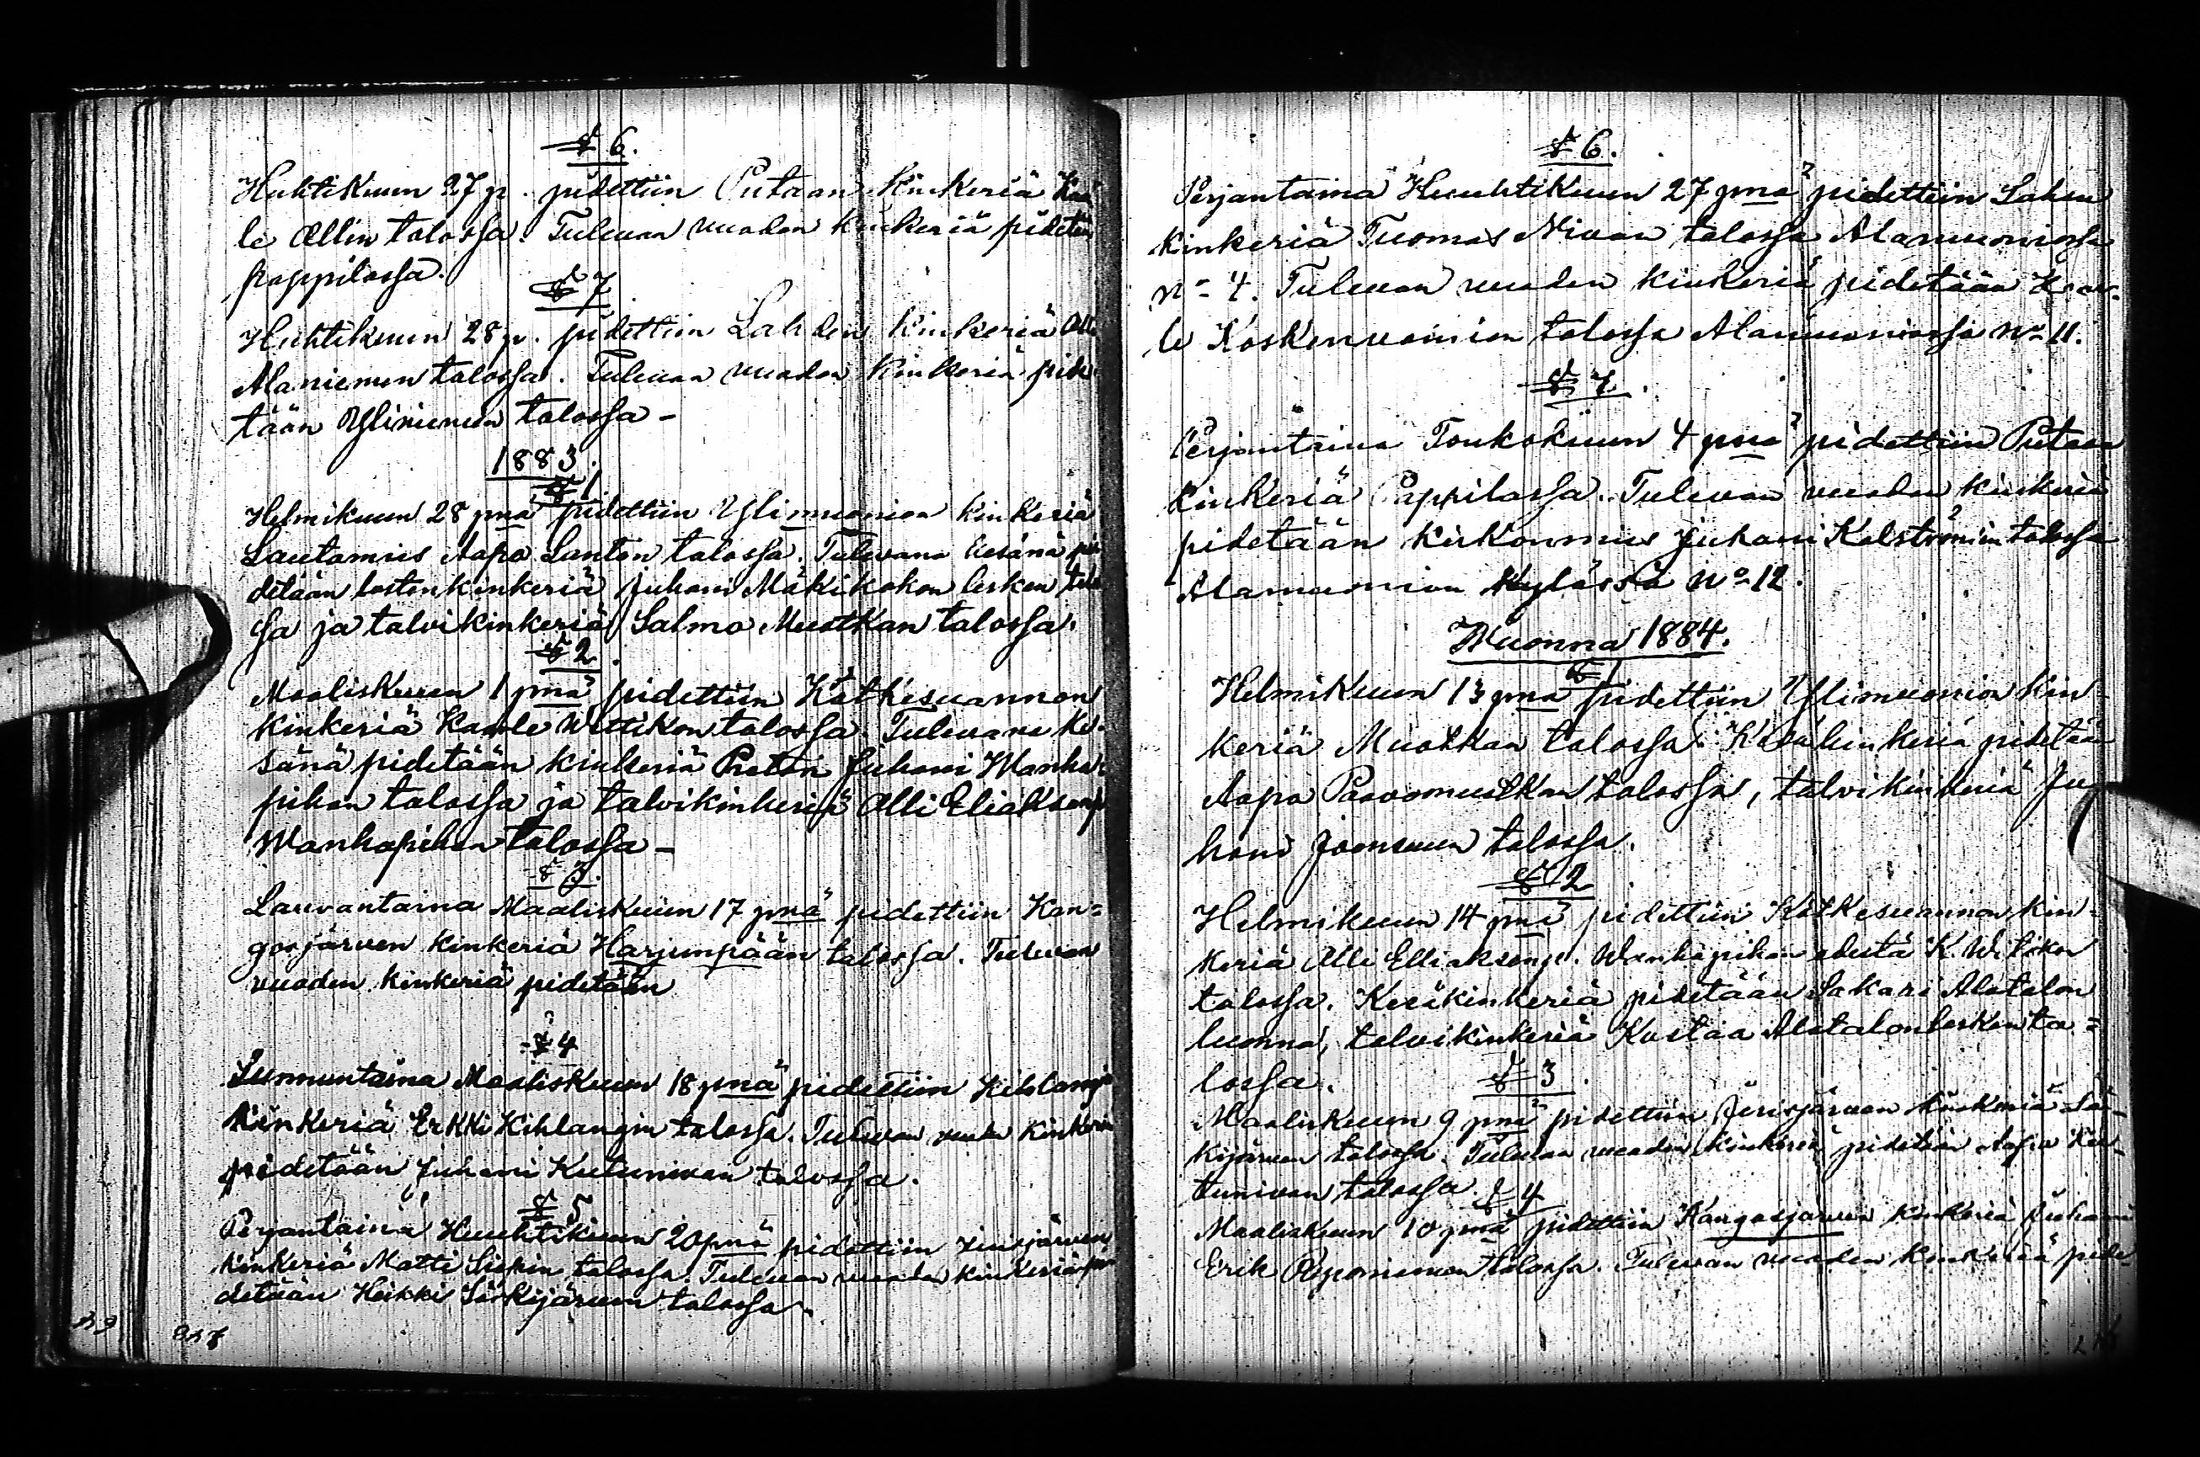 § 6.
Huhtikuun 27 p. pidettiin Putaan kinkeriä Kaa
le Ollin talossa. Tulevan vuoden kinkeriä pidetän
pappilassa.
§ 7
Huhtikuun 28 p. pidettiin Lahden kinkeriä Olli
Alaniemen talossa. Tulevan vuoden kinkeriä pide
tään Yliniemen talossa –
1883.
§ 1
Helmikuun 28 pnä pidettiin Ylimuonion kinkeriä
Lautamies Aapo Lanton talossa. Tulevana kesänä pi
detään lastenkinkeriä Juhani Mäkikokon lesken talo
ssa ja talvikinkeriä Salmo Muotkan talossa.
§ 2.
Maaliskuun 1 pnä pidettiin Kätkesuannon
kinkeriä Kaale Wittikon talossa. Tulevana ke-
sänä pidetään kinkeriä Pretari Juhani Wanha-
pihan talossa ja talvikinkeriä Olli Eliaksenp
Wanhapihan talossa –
§ 3.
Lauvantaina Maaliskuun 17 pnä pidettiin Kan=
gosjärven kinkeriä Harjunpään talossa. Tulevan
vuoden kinkeriä pidetään
§ 4
Sunnuntaina Maaliskuun 18 pnä pidettiin Kihlangi
kinkeriä Erkki Kihlangin talossa. Tulevan vuoden kinkeriä
pidetään Juhani Kutunivan talossa.
§ 5
Perjantaina Huuhtikuun 20 pnä pidettiin Jerisjärven
kinkeriä Matti Liikin talossa. Tulevan vuoden kinkeriä pi
detään Heikki Särkijärven talossa.
§ 6.
Perjantaina Huuhtikuun 27 pnä pidettiin Lahen
kinkeriä Tuomas Nivan talossa Alamuoniossa
No 4. Tulevan vuoden kinkeriä pidetään Kaa-
le Koskenvainion talossa Alamuoniossa No 11.
§ 7.
Perjantaina Toukokuun 4 pnä pidettiin Putaan
kinkeriä Pappilassa. Tulevan vuoden kinkeriä
pidetään kirkonmies Juhani Kalströmin talossa
Alamuonion kylässä No 12.
Wuonna 1884.
§ 1
Helmikuun 13 pnä pidettiin Ylimuonion kin-
keriä Muotkan talossa. Kesäkinkeriä pidetään
Aapo Paavomuotkan talossa, talvikinkeriä Ju
hani Joensuun talossa.
§ 2
Helmikuun 14 pnä pidettiin Kätkesuannon kin-
keriä Olli Elliaksenp. Wanhapihan edestä K. Witikon
talossa. Kesäkinkeriä pidetään Sakari Alatalon
luonna, talvikinkeriä Kustaa Alatalon lesken ta=
lossa.
§ 3.
Maaliskuun 9 pnä pidettiin Jerisjärven kinkeriä Sär-
kijärven talossa. Tulevan vuoden kinkeriä pidetään Aapo Ku-
tunivan talossa.
§ 4
Maaliskuun 10 pnä pidettiin Kangosjärven kinkeriä Juhani
Erik Reponiemen talossa. Tulevan vuoden kinkeriä pide-